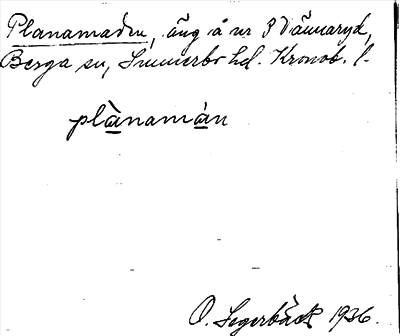 Planamaden, äng å nr 3 Vännaryd,
Berga sn, Sunnerbo hd. Kronob. l.
plànamàn
O. Segerbäck 1936.